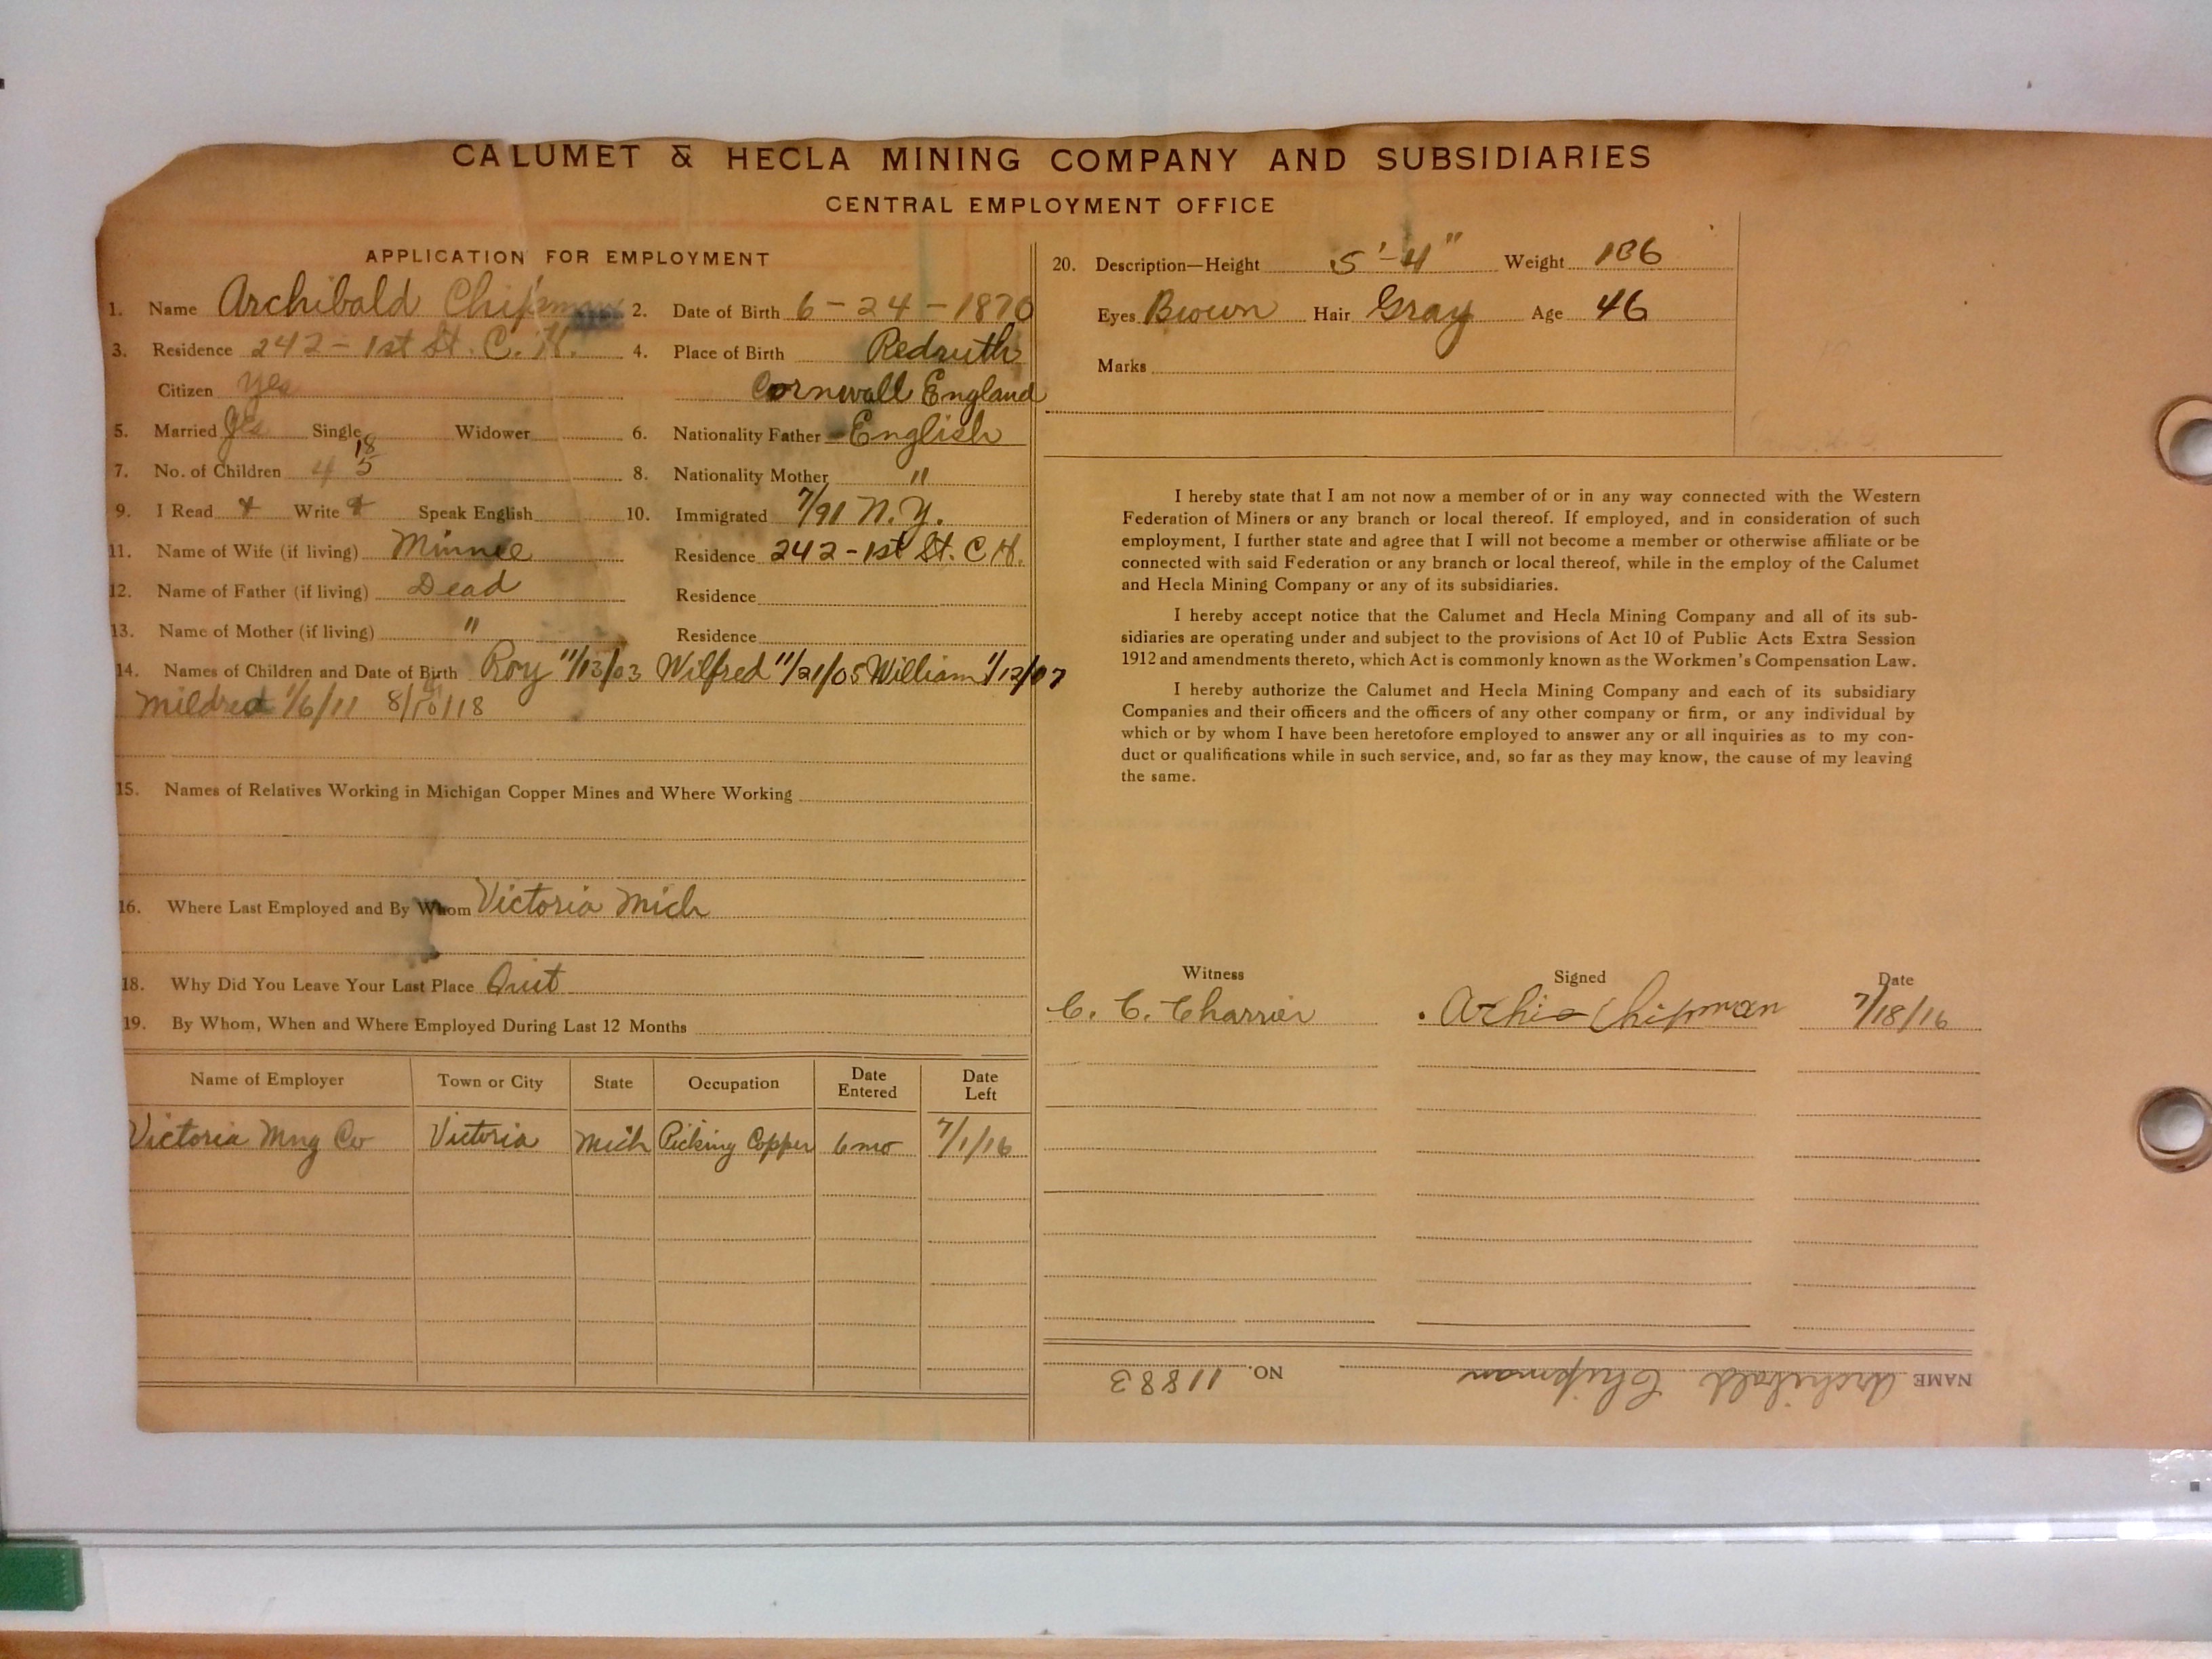 CALUMET & HECLA MINING COMPANY AND SUBSIDIARIES
CENTRAL EMPLOYMENT OFFICE
APPLICATION FOR EMPLOYMENT
1. Name Archibald Chipman 2. Date of Birth 6-24-1870
3. Residence 242-1st St. C. H. 4. Place of Birth Redruth
Citizen yes Cornwall England
5. Married yes Single Widower 6. Nationality Father English
18
7. No. of Children 4 5 8. Nationality Mother "
9. I Read Write Speak English 10. Immigrated 7/91 N.Y.
11. Name of Wife (if living) Minnie Residence 242-1st St. C H.
12. Name of Father (if living) Dead Residence
13. Name of Mother (if living) " Residence
14. Names of Children and Date of Birth Roy 11/13/03 Wilfred 11/21/05 William 1/12/07
Mildred 1/6/11 8/18
15. Names of Relatives Working in Michigan Copper Mines and Where Working
16. Where Last Employed and By Whom Victoria Mich
18. Why Did You Leave Your Last Place Quit
19. By Whom, When and Where Employed During Last 12 Months
Name of Employer Town or City State Occupation Date Entered Date Left
Victoria Mng Co Victoria Mich Picking Copper 6 mo 7/1/16
20. Description—Height 5'-4" Weight 136
Eyes Brown Hair Gray Age 46
Marks
I hereby state that I am not now a member of or in any way connected with the Western
Federation of Miners or any branch or local thereof. If employed, and in consideration of such
employment, I further state and agree that I will not become a member or otherwise affiliate or be
connected with said Federation or any branch or local thereof, while in the employ of the Calumet
and Hecla Mining Company or any of its subsidiaries.
I hereby accept notice that the Calumet and Hecla Mining Company and all of its sub-
sidiaries are operating under and subject to the provisions of Act 10 of Public Acts Extra Session
1912 and amendments thereto, which Act is commonly known as the Workmen's Compensation Law.
I hereby authorize the Calumet and Hecla Mining Company and each of its subsidiary
Companies and their officers and the officers of any other company or firm, or any individual by
which or by whom I have been heretofore employed to answer any or all inquiries as to my con-
duct or qualifications while in such service, and, so far as they may know, the cause of my leaving
the same.
Witness Signed Date
C. C. Charrier Archie Chipman 7/18/16
NAME Archibald Chipman NO. 11883